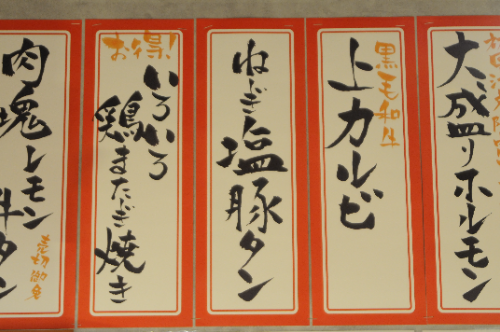 大盛りホルモン
黒毛和牛
上カルビ
ねぎ塩豚タン
お得!
いろいろ
鶏またぎ焼き
肉塊レモン
牛タン
売切御免